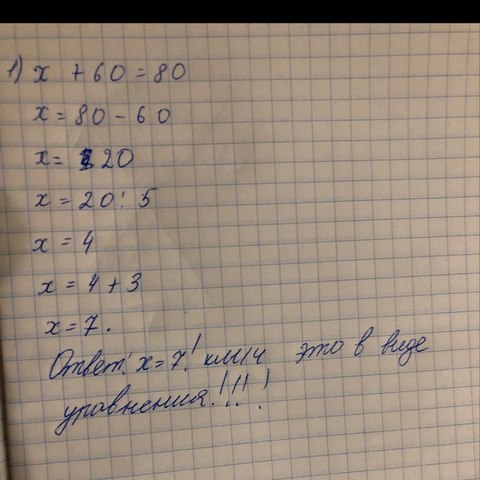 1) x + 60 = 80
x = 80 - 60
x = 20
x = 20 : 5
x = 4
x = 4 + 3
x = 7.
Ответ: x = 7! км/ч это в виде
уравнения!!!!